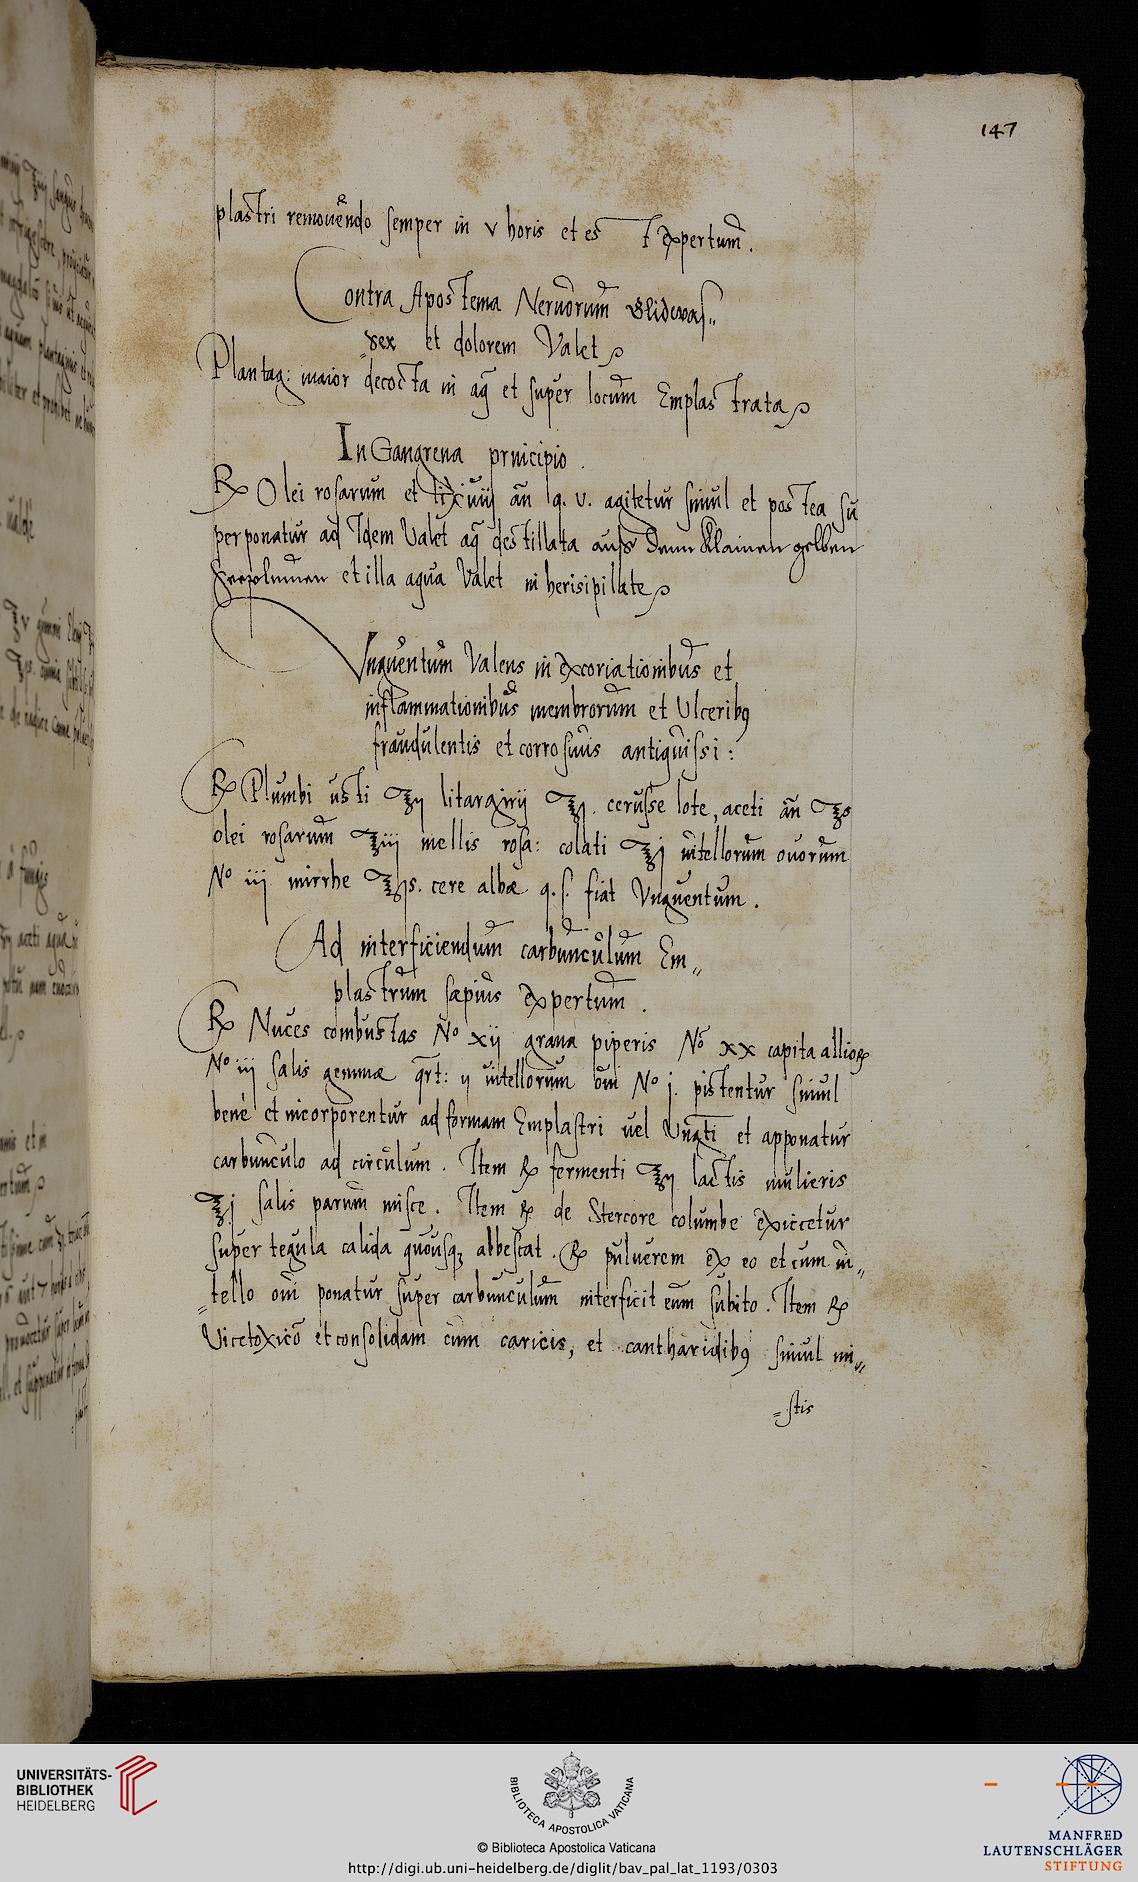 147
plastri removendo semper in v horis et est expertum.
Contra Apostema Nervorum Glidwas„
„ser et dolorem Valet
Plantag: maior decocta in aq̃ et super locum Emplastrata
In Gangrena principio.
℞ Olei rosarum et lixivij añ q. v. agitetur simul et postea su
perponatur ad Idem Valet aq̃ destillata auss dem klainen gelben
Seeplumen et illa aqua Valet in herisipilate
Unguentum Valens in excoriationibus et
inflammationibus membrorum et Ulceribꝯ
fraudulentis et corrosivis antiquissi:
℞ Plumbi usti ℥ij litargirij ℥j. cerusse lote, aceti añ ℥s
olei rosarum ℥iij mellis rosa: colati ℥j vitellorum ovorum
No iij mirrhe ℥s. cere albæ q. s. fiat Unguentum.
Ad interficiendum carbunculum Em„
plastrum sæpius expertum.
℞ Nuces combustas No xij grana piperis No xx capita alliorꝝ
No iij salis gemmæ qrt: ij vitellorum ovi No j. pistentur simul
bene et incorporentur ad formam Emplastri vel Ungti et apponatur
carbunculo ad circulum. Item ℞ fermenti ℥ij lactis mulieris
℥j salis parum misce. Item ℞ de Stercore columbe exiccetur
super tegula calida quousqꝫ albescat. ℞ pulverem ex eo et cum vi„
„tello ovi ponatur super carbunculum interficit eum subito. Item ℞
Vicetoxicō et consolidam cum caricis, et cantharidibꝯ simul mi„
„stis
UNIVERSITÄTS-
BIBLIOTHEK
HEIDELBERG
BIBLIOTECA APOSTOLICA VATICANA
© Biblioteca Apostolica Vaticana
http://digi.ub.uni-heidelberg.de/diglit/bav_pal_lat_1193/0303
MANFRED
LAUTENSCHLÄGER
STIFTUNG